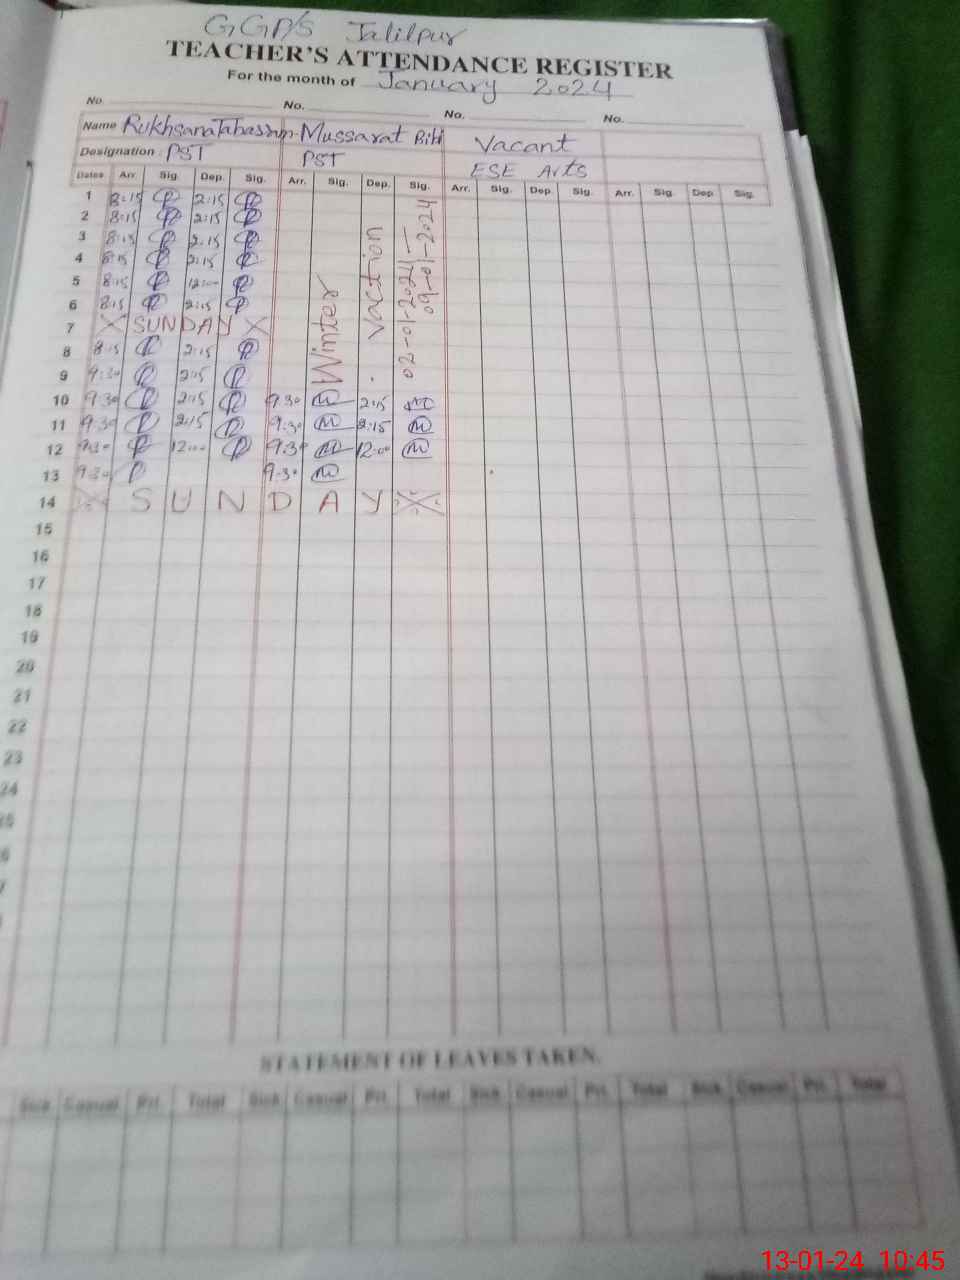 GGP/S Jalilpur
TEACHER'S ATTENDANCE REGISTER
For the month of January 2024
No. No. No. No.
Name Rukhsana Tabassum Mussarat Bibi Vacant
Designation : PST PST ESE Arts
Dates Arr. Sig. Dep. Sig. Arr. Sig. Dep. Sig. Arr. Sig. Dep. Sig. Arr. Sig. Dep. Sig.
1 8:15 2:15
2 8:15 2:15
3 8:15 2:15
4 8:15 2:15
5 8:15 12:00
6 8:15 2:15
7 X SUNDAY X
8 8:15 2:15
9 9:30 2:15
Winter vaction
02-01-2024
09-01-2024
10 9:30 2:15 9:30 2:15
11 9:30 2:15 9:30 2:15
12 9:30 12:00 9:30 12:00
13 9:30 9:30
14 X SUNDAY X
15
16
17
18
19
20
21
22
23
24
STATEMENT OF LEAVES TAKEN.
Sick Casual Pri. Total Sick Casual Pri. Total Sick Casual Pri. Total Sick Casual Pri. Total
13-01-24 10:45